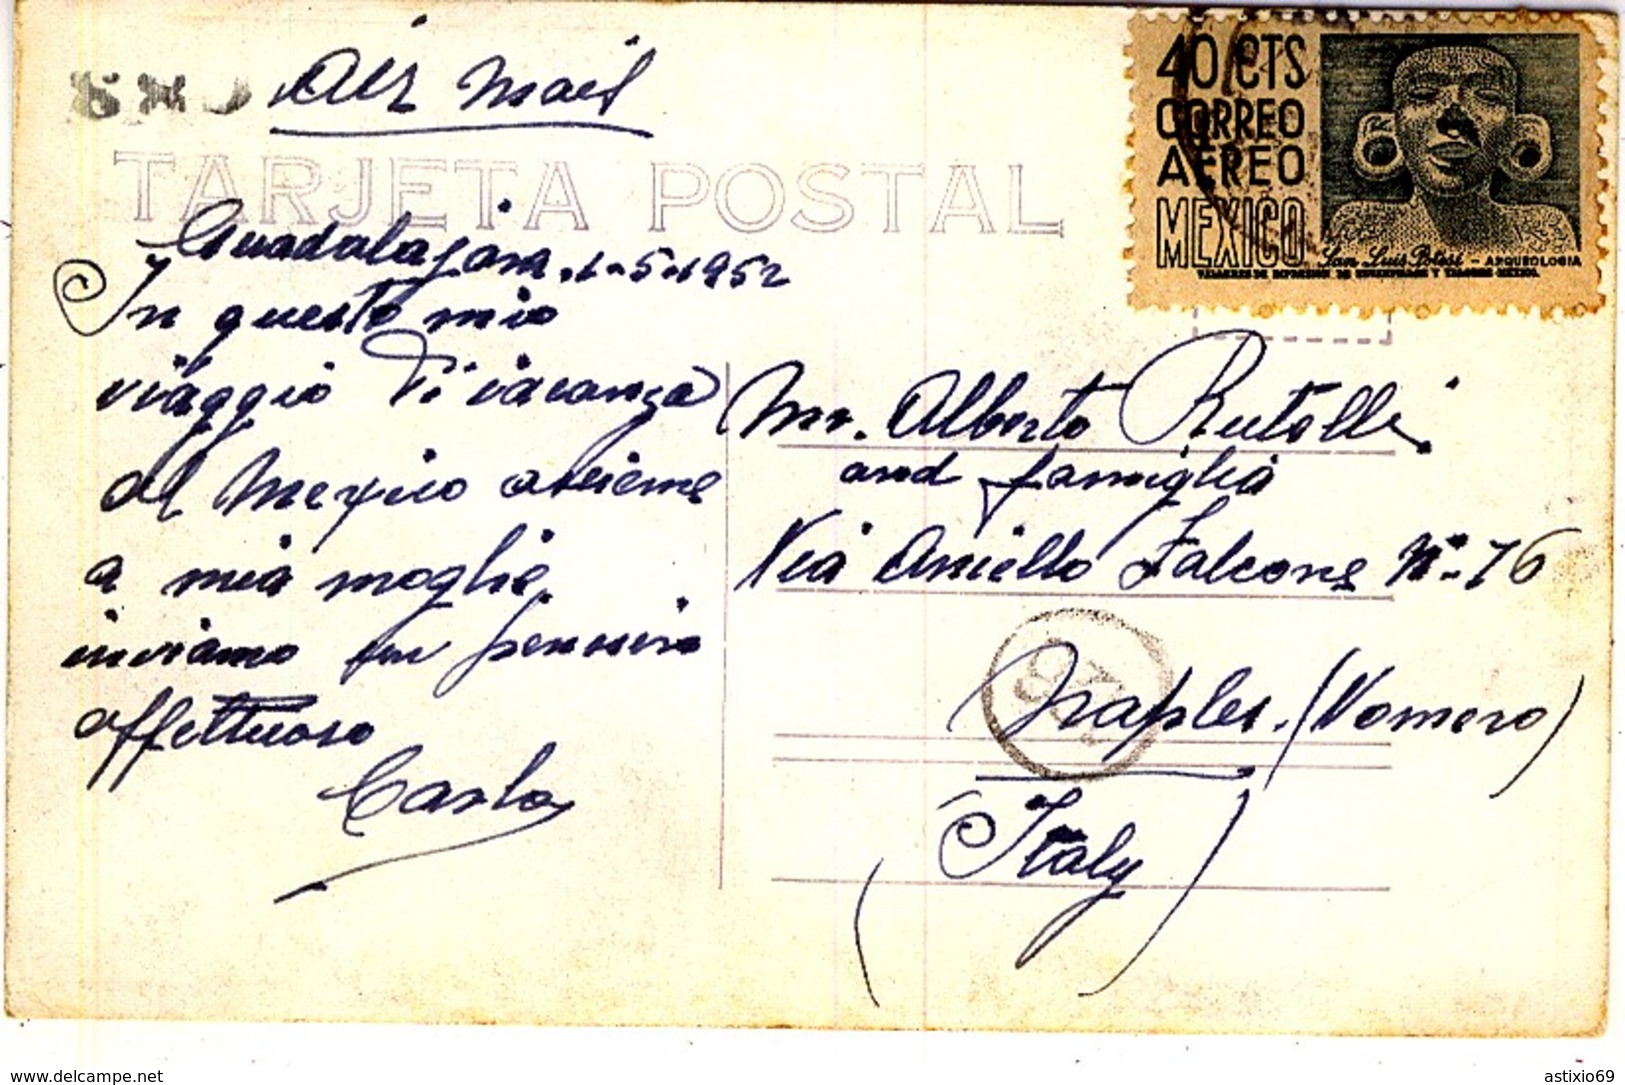 Air Mail
TARJETA POSTAL
40 CTS
CORREO
AEREO
MEXICO
San Luis Potosi - ARQUEOLOGIA
Guadalajara. 1-5-1952
In questo mio
viaggio di vacanza
al Mexico assieme
a mia moglie
inviamo un pensiero
affettuoso
Carlo
Mr. Alberto Rutolli
and famiglia
Via Aniello Falcone N°-76
Naples. (Vomero)
(Italy)
delcampe.net
astixio69